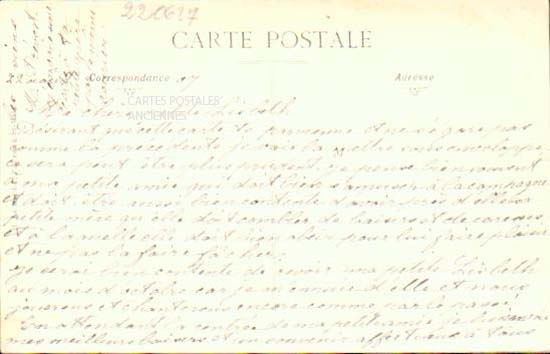 220627
CARTE POSTALE
22 Correspondance 07 Adresse
CARTES POSTALES
ANCIENNES
Ma chère petite Lisbeth
Désirant que cette carte te parvienne et ne s'égare pas
comme la précédente je vais la mettre sous enveloppe
ce sera peut être plus prudent, je pense bien souvent
à ma petite amie qui doit bien s'amuser à la campagne
et doit être aussi bien contente d'avoir près d'elle sa
petite mère qu'elle doit combler de baisers et de caresses
et à laquelle elle doit bien obéir pour lui faire plaisir
et ne pas la faire fâcher.
je serai bien contente de revoir ma petite Lisbeth
au mois d'octobre car je m'ennuie d'elle et nous
jouerons et chanterons encore comme par le passé
En attendant la rentrée de ma petite amie je lui envoie
mes meilleurs baisers et un souvenir affectueux à tous